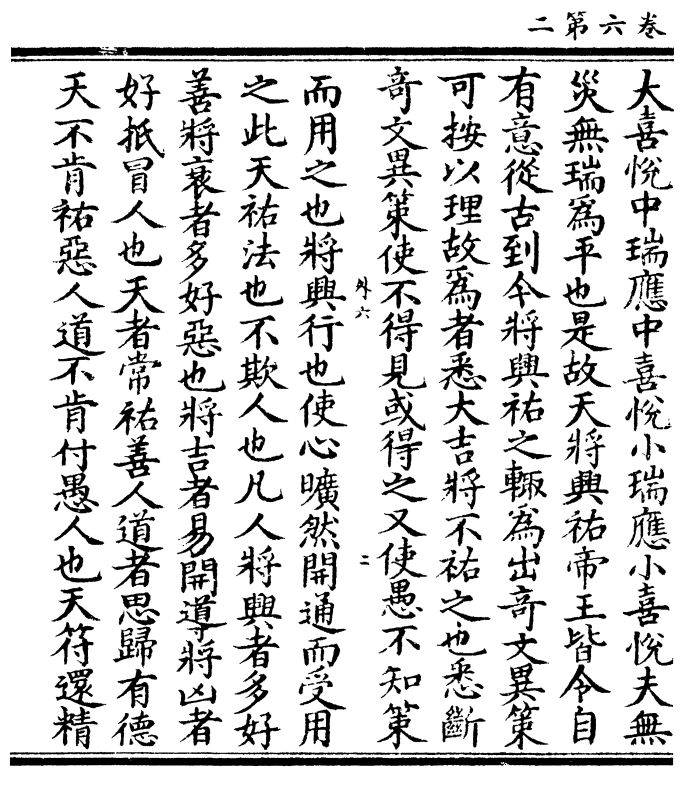 卷六第二
大喜悅中瑞應中喜悅小瑞應小喜悅夫無
災無瑞爲平也是故天將興祐帝王皆令自
有意從古到今將興祐之輙爲出竒文異策
可按以理故爲者悉大吉將不祐之也悉斷
竒文異策使不得見或得之又使愚不知策
外六 二
而用之也將興行也使心曠然開通而受用
之此天祐法也不欺人也凡人將興者多好
善將衰者多好惡也將吉者易開導將凶者
好抵冒人也天者常祐善人道者思歸有德
天不肯祐惡人道不肯付愚人也天符還精